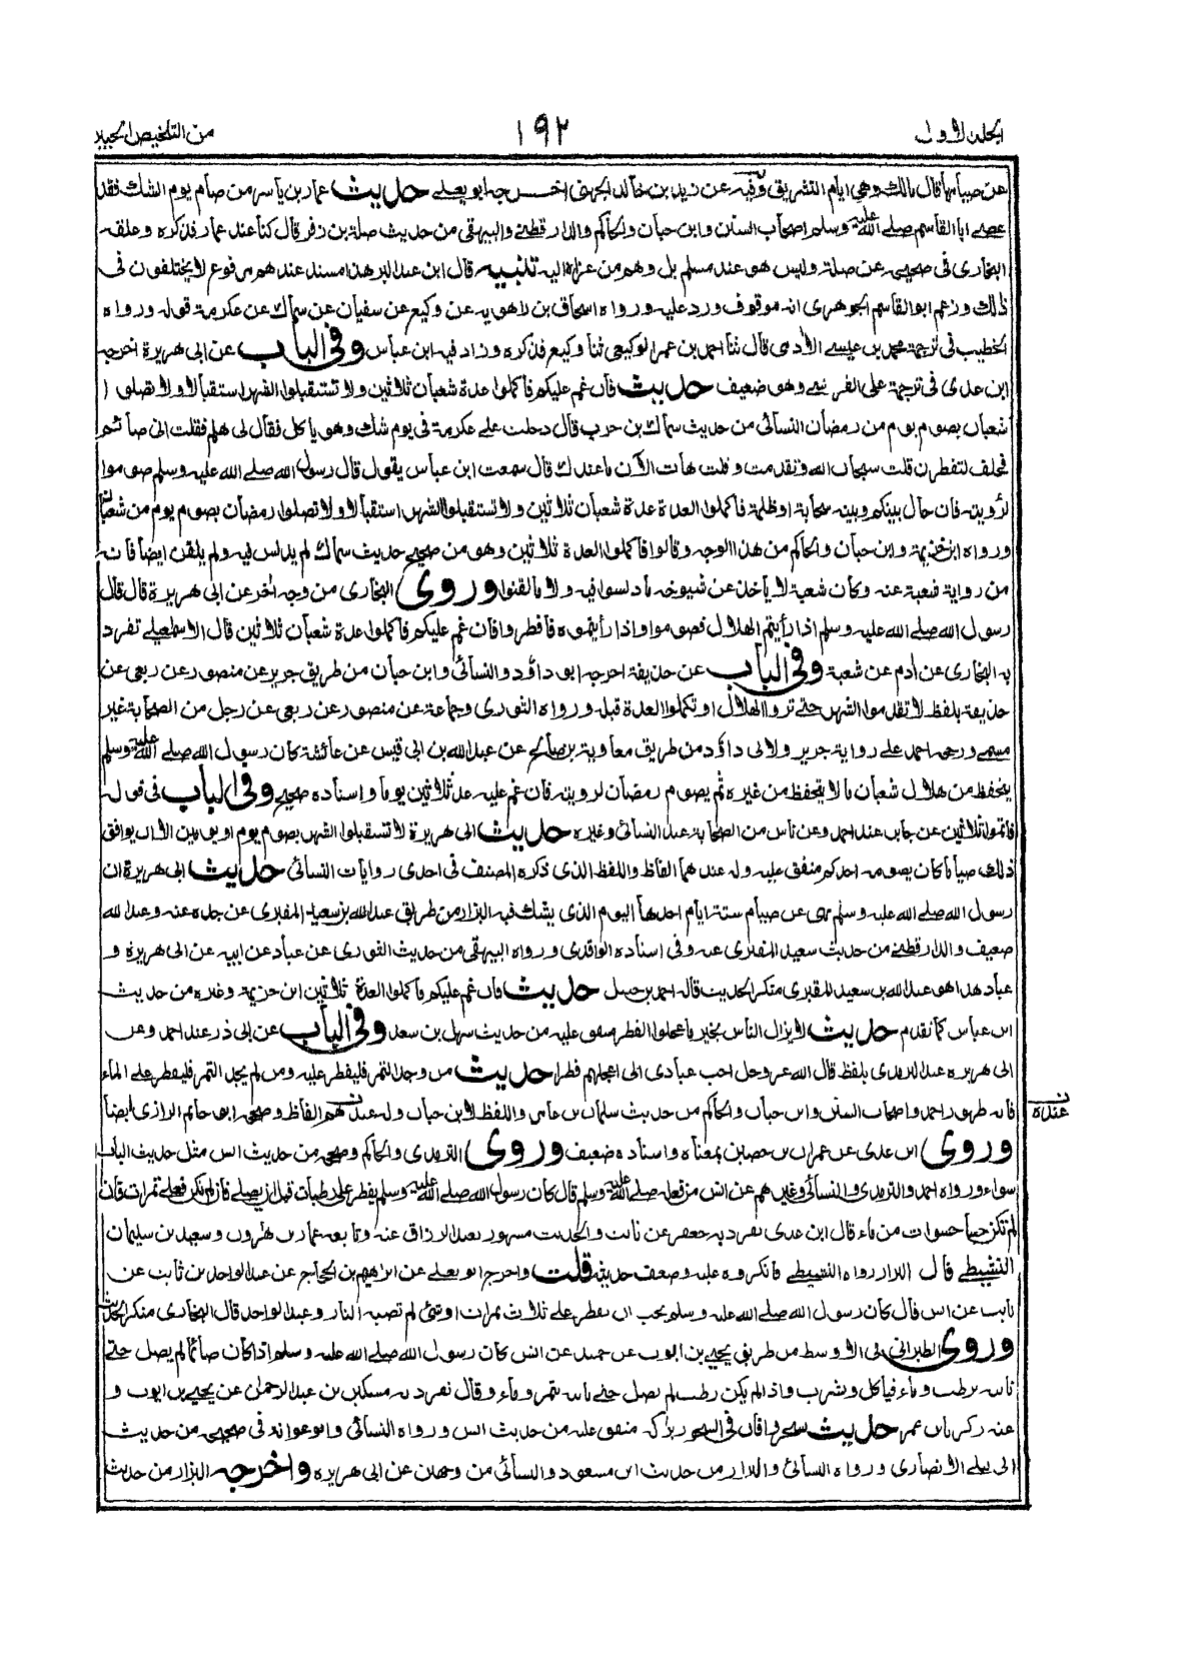 الجلد الاول ١٩٢ من التلخيص الحبير
عن صيامها قال مالك وهي ايام التشريق وفيه عن زيد بن خالد الجهني اخرجه ابو يعلے حديث عمار بن ياسر من صام يوم الشك فقد
عصے ابا القاسم صلے الله عليه وسلم اصحاب السنن وابن حبان والحاكم والدارقطني والبيهقي من حديث صلة بن زفر قال كنا عند عمار فذكره وعلقه
البخاري في صحيحه عن صلة وليس هو عند مسلم بل وهم من عزاه اليه تنبيه قال ابن عبد البر هذا مسند عندهم مرفوع لا يختلفون في
ذلك وزعم ابو القاسم الجوهري انه موقوف ورد عليه ورواه اسحاق بن راهويه عن وكيع عن سفيان عن سماك عن عكرمة قوله ورواه
الخطيب في ترجمة محمد بن عيسے الأدمي قال ثنا احمد بن عمر الوكيعي ثنا وكيع فذكره وزاد فيه ابن عباس وفي الباب عن ابي هريرة اخرجه
ابن عدي في ترجمة علي القرشي وهو ضعيف حديث فان غم عليكم فاكملوا عدة شعبان ثلاثين ولا تستقبلوا الشهر استقبالا ولا تصلوا
شعبان بصوم يوم من رمضان النسائي من حديث سماك بن حرب قال دخلت علے عكرمة في يوم شك وهو يأكل فقال لي هلم فقلت اني صائم
فحلف لتفطرن قلت سبحان الله وتقدمت وقلت هات الآن ما عندك قال سمعت ابن عباس يقول قال رسول الله صلے الله عليه وسلم صوموا
لرؤيته فان حال بينكم وبينه سحابة او ظلمة فاكملوا العدة عدة شعبان ثلاثين ولا تستقبلوا الشهر استقبالا ولا تصلوا رمضان بصوم يوم من شعبان
ورواه ابن خزيمة وابن حبان والحاكم من هذا الوجه وقالوا فاكملوا العدة ثلاثين وهو من صحيح حديث سماك لم يدلس فيه ولم يلقن ايضا فانه
من رواية شعبة عنه وكان شعبة لا يأخذ عن شيوخه ما دلسوا فيه ولا ما لقنوا وروى البخاري من وجه اٰخر عن ابي هريرة قال قال
رسول الله صلے الله عليه وسلم اذا رأيتم الهلال فصوموا واذا رأيتموه فافطروا فان غم عليكم فاكملوا عدة شعبان ثلاثين قال الاسمٰعيلے تفرد
به البخاري عن اٰدم عن شعبة وفي الباب عن حذيفة اخرجه ابو داؤد والنسائي وابن حبان من طريق جرير عن منصور عن ربعي عن
حذيفة بلفظ لا تقدموا الشهر حتے تروا الهلال او تكملوا العدة قبله ورواه الثوري وجماعة عن منصور عن ربعي عن رجل من الصحابة غير
مسمے ورجحه احمد علے رواية جرير ولابي داؤد من طريق معاوية بن صالح عن عبد الله بن ابي قيس عن عائشة كان رسول الله صلے الله عليه وسلم
يتحفظ من هلال شعبان ما لا يتحفظ من غيره ثم يصوم رمضان لرويته فان غم عليه عد ثلاثين يوما واسناده صحيح وفي الباب في قوله
فاتموا ثلاثين عن جابر عند احمد وعن ناس من الصحابة عند النسائي وغيره حديث ابي هريرة لا تستقبلوا الشهر بصوم يوم او يومين الا ان يوافق
ذلك صياما كان يصومه احدكم متفق عليه وله عندهما الفاظ واللفظ الذي ذكره المصنف في احدى روايات النسائي حديث ابي هريرة ان
رسول الله صلے الله عليه وسلم نهى عن صيام ستة ايام احدها اليوم الذي يشك فيه البزار من طريق عبد الله بن سعيد المقبري عن جده عنه وعبد الله
ضعيف والدارقطني من حديث سعيد المقبري عنه وفي اسناده الواقدي ورواه البيهقي من حديث الثوري عن عباد عن ابيه عن ابي هريرة و
عباد هذا هو عبد الله بن سعيد المقبري منكر الحديث قاله احمد بن حنبل حديث فان غم عليكم فاكملوا العدة ثلاثين ابن خزيمة وغيره من حديث
ابن عباس كما تقدم حديث لا يزال الناس بخير ما عجلوا الفطر متفق عليه من حديث سهل بن سعد وفي الباب عن ابي ذر عند احمد وعن
ابي هريره عند الترمذي بلفظ قال الله عز وجل احب عبادي الي اعجلهم فطرا حديث من وجد التمر فليفطر عليه ومن لم يجد التمر فليفطر علے الماء
فانه طهور احمد واصحاب السنن وابن حبان والحاكم من حديث سلمان بن عامر واللفظ لابن حبان وله عندهم الفاظ وصححه ابو حاتم الرازي ايضا
عنده
وروى ابن عدي عن عمران بن حصين بمعناه واسناده ضعيف وروى الترمذي والحاكم وصححه من حديث انس مثل حديث الباب
سواء ورواه احمد والترمذي والنسائي وغيرهم عن انس من فعله صلے الله عليه وسلم قال كان رسول الله صلے الله عليه وسلم يفطر علے رطبات قبل ان يصلے فان لم تكن فعلے تمرات فان
لم تكن حسا حسوات من ماء قال ابن عدي تفرد به جعفر عن ثابت والحديث مشهور بعبد الرزاق عنه وتابعه عمار بن هٰرون وسعيد بن سليمان
النشيطے قال البزار رواه النشيطے فانكروه عليه وضعف حديثه قلت واخرج ابو يعلے عن ابرٰهيم بن الحجاج عن عبد الواحد بن ثابت عن
ثابت عن انس قال كان رسول الله صلے الله عليه وسلم يحب ان يفطر علے ثلاث تمرات او شئ لم تصبه النار وعبد الواحد قال البخاري منكر الحديث
وروى الطبراني في الاوسط من طريق يحيے بن ايوب عن حميد عن انس كان رسول الله صلے الله عليه وسلم اذا كان صائما لم يصل حتے
ناتيه برطب وماء فياكل ويشرب واذا لم يكن رطب لم يصل حتے ناتيه بتمر وماء وقال تفرد به مسكين بن عبد الرحمٰن عن يحيے بن ايوب و
عنه زكريا بن عمر حديث تسحروا فان في السحور بركة متفق عليه من حديث انس ورواه النسائي وابو عوانه في صحيحه من حديث
ابي ليلے الانصاري ورواه النسائي والبزار من حديث ابن مسعود والنسائي من وجهين عن ابي هريره واخرجه البزار من حديث